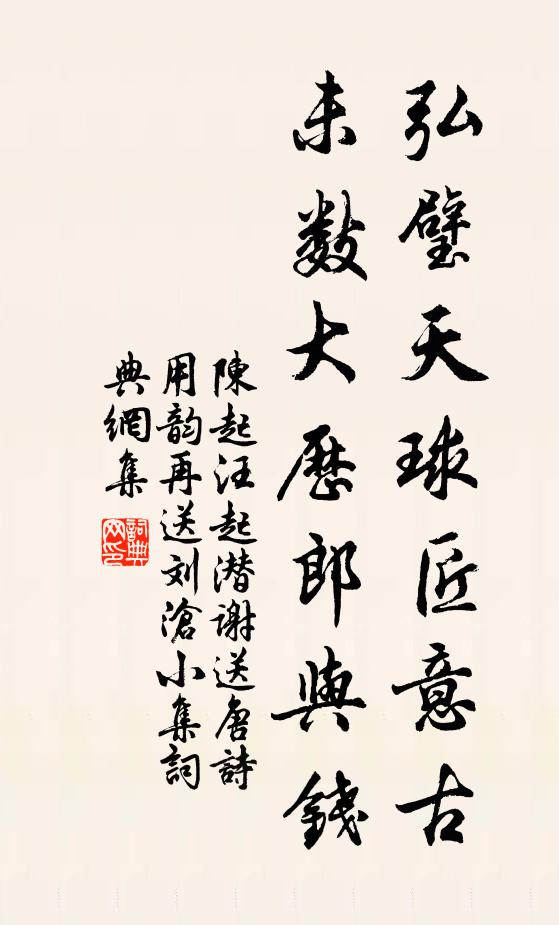 弘璧天球匠意古
未数大歷郎與錢
陳起汪起潜謝送唐詩
用韵再送刘滄小集詞
典網集
詞典网印